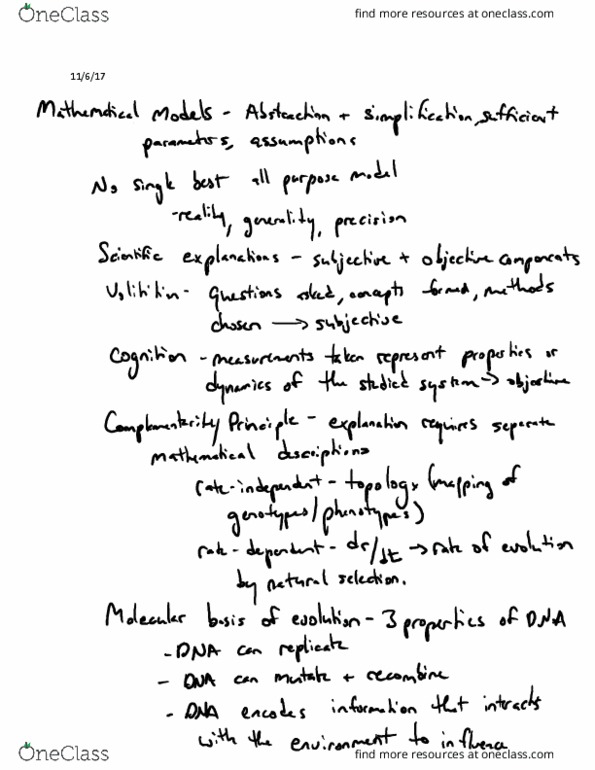 OneClass
find more resources at oneclass.com
11/6/17
Mathematical Models - Abstraction + simplification, sufficient
parameters, assumptions
No single best all purpose model
-reality, generality, precision
Scientific explanations - subjective + objective components
Volitition - questions asked, concepts formed, methods
chosen → subjective
Cognition - measurements taken represent properties or
dynamics of the studied system → objective
Complementarity Principle - explanation requires separate
mathematical descriptions
rate-independent - topology (mapping of
genotypes/phenotypes)
rate-dependent - dr/dt → rate of evolution
by natural selection.
Molecular basis of evolution - 3 properties of DNA
- DNA can replicate
- DNA can mutate + recombine
- DNA encodes information that intracts
with the environment to influence
OneClass
find more resources at oneclass.com